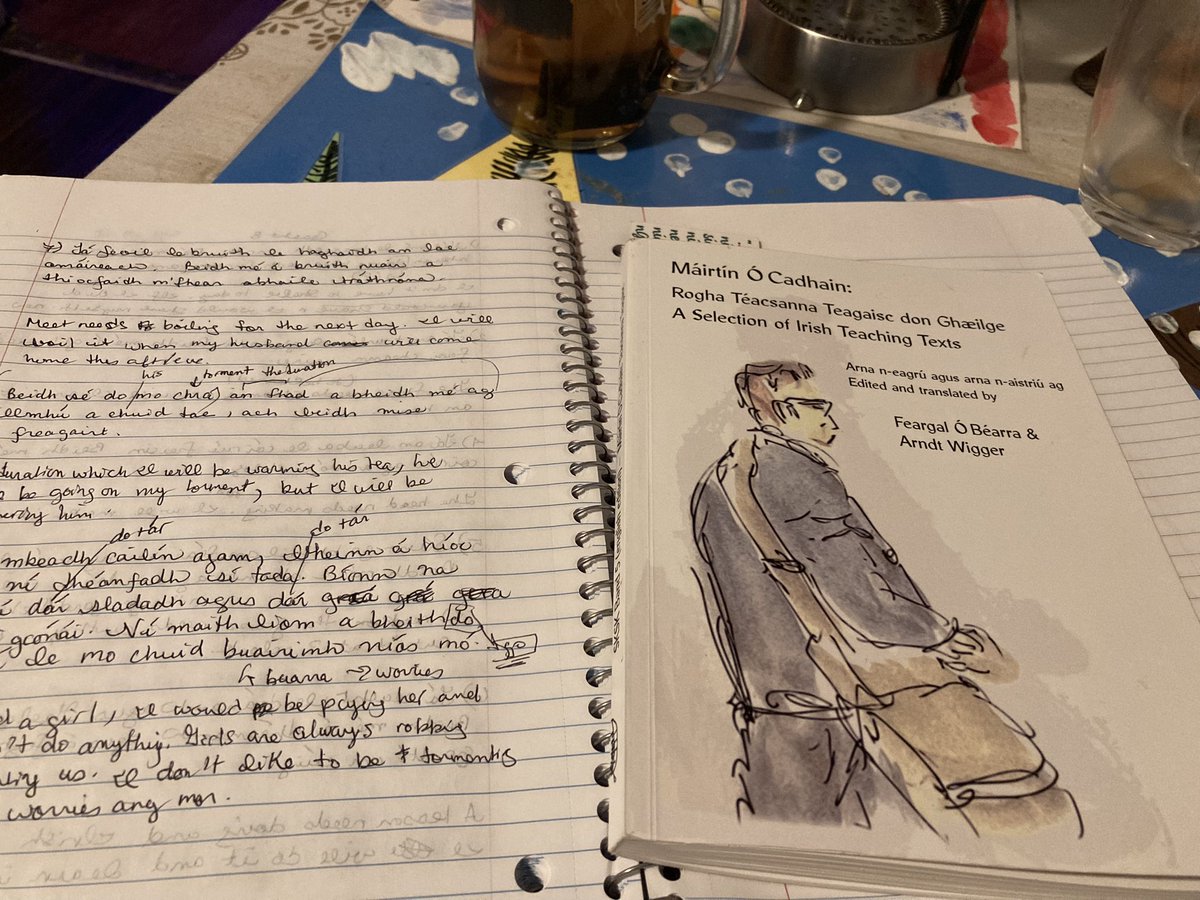 7) Tá feoil le bruith le haghaidh an lae
amáireach. Beidh mé á bruith nuair a
thiocfaidh m'fhear abhaile tráthnóna.
Meet needs boiling for the next day. I will
boil it when my husband will come
home this aft/eve.
his
torment the duration
Beidh sé do mo chrá an fhad a bheidh mé ag
a chuid tae, ach beidh muse
freagairt.
duration which I will be warming his tea, he
be going on my torment, but I will be
him.
do + ár
do + ár
mbeadh cailín agam, bheinn á híoc
ní dhéanfadh isí tada. Bíonn na
dár sladadh agus dár
gconaí. Ní maith liom a bheith do
le mo chuid buairimh níos mó.
buarra → worries
a girl, I would be paying her and
't do anything. Girls are always robbing
us. I don't like to be tormenting
worries any mor.
Máirtín Ó Cadhain:
Rogha Téacsanna Teagaisc don Ghæilge
A Selection of Irish Teaching Texts
Arna n-eagrú agus arna n-aistriú ag
Edited and translated by
Feargal Ó Béarra &
Arndt Wigger